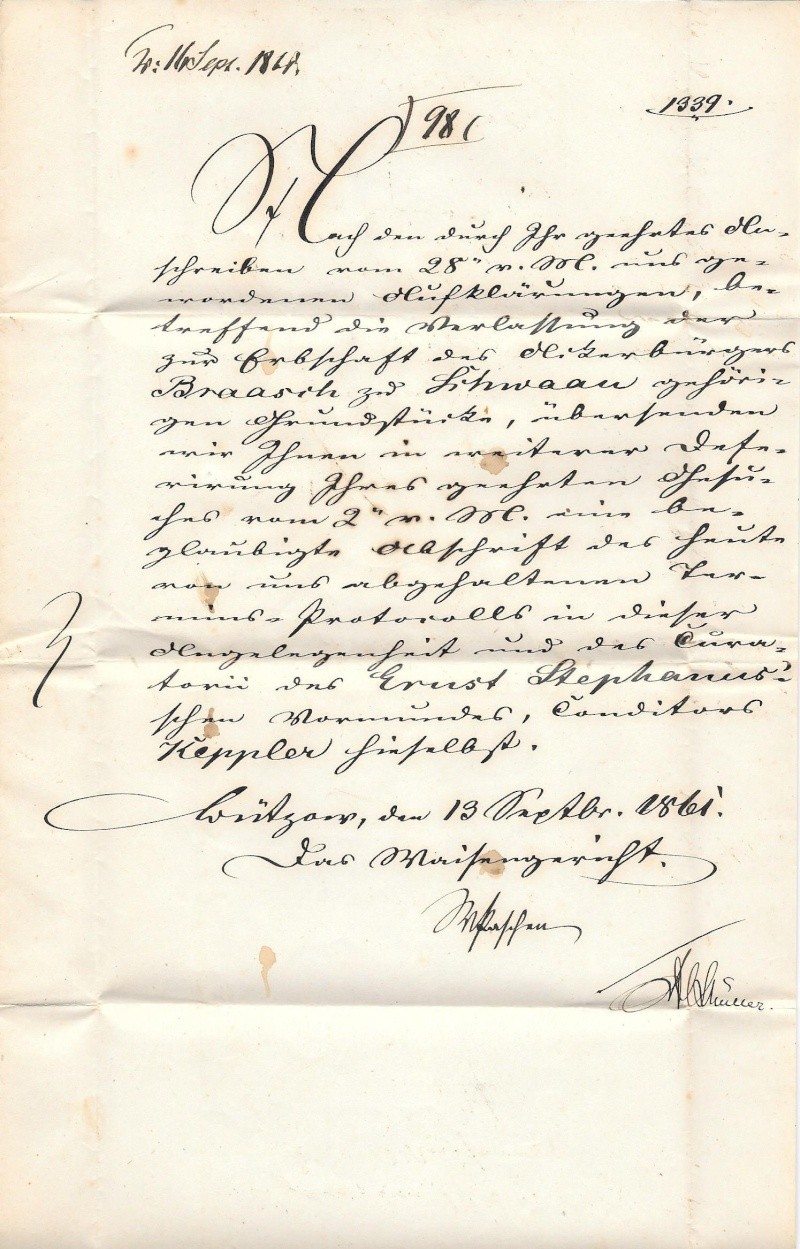 16 Sept. 1861.
1339.
98
Nach den durch Ihr geehrtes An-
schreiben vom 28" v. M. uns ge-
wordenen Aufklärungen, be-
treffend die Verlassung der
zur Erbschaft des Ackerbürgers
Braasch zu Schwaan gehöri-
gen Grundstücke, übersenden
wir Ihnen in weiterer Defe-
rirung Ihres geehrten Gesu-
ches vom 2" v. M. eine be-
glaubigte Abschrift des heute
von uns abgehaltenen Ter-
mins-Protocolls in dieser
Angelegenheit und des Cura-
torii des Ernst Stephanus'-
schen Vormundes, Conditors
Keppler hieselbst.
Bützow, den 13 Septbr. 1861.
Das Waisengericht.
Paschen